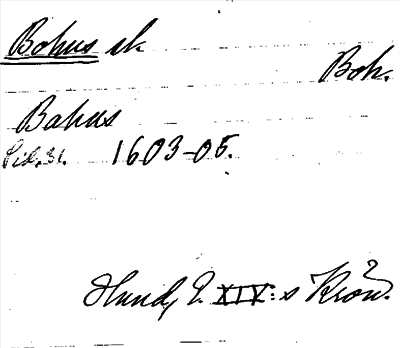 Bohus sk
Boh.
Bahus
Sid. 31. 1603-05.
Hund, E. XIV:s Krön.